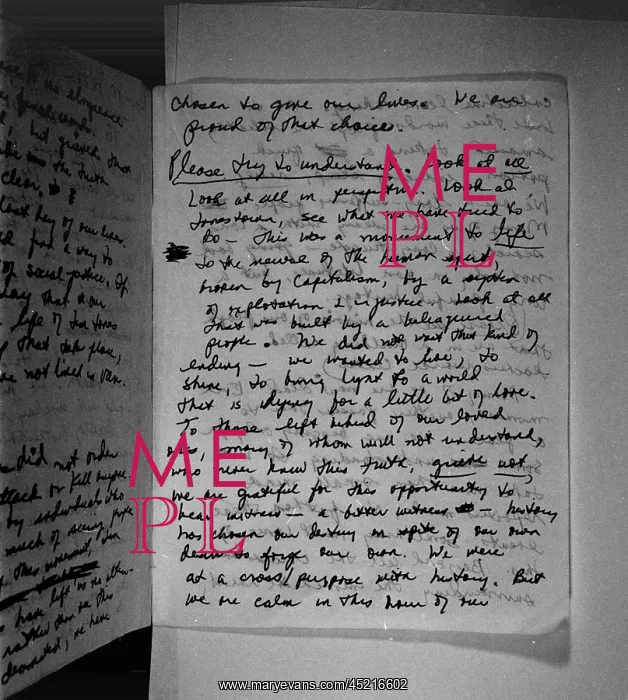 chosen to give our lives. We are
proud of that choice.
Please try to understand. Look at all
Look at all in perspective. Look at
Jonestown, see what we have tried to
do — This was a movement to life
to the renewal of the human spirit,
broken by Capitalism, by a system
of exploitation & injustice. Look at all
that was built by a beleaguered
people. We did not want this kind of
ending — we wanted to live, to
shine, to bring light to a world
that is dying for a little bit of love.
To those left behind of our loved
ones, many of whom will not understand,
who never knew this truth, grieve not,
we are grateful for this opportunity to
bear witness — a bitter witness — history
has chosen our destiny in spite of our own
desire to forge our own. We were
at a cross/purpose with history. But
we are calm in this hour of our
the truth
clear,
last day of our lives.
of social justice. If
day that is our
that took place,
not lived in vain.
did not order
attack or kill anyone.
by individuals who
much of seeing people
this movement, Jim
have left
ME
PL
ME
PL
www.maryevans.com/45216602